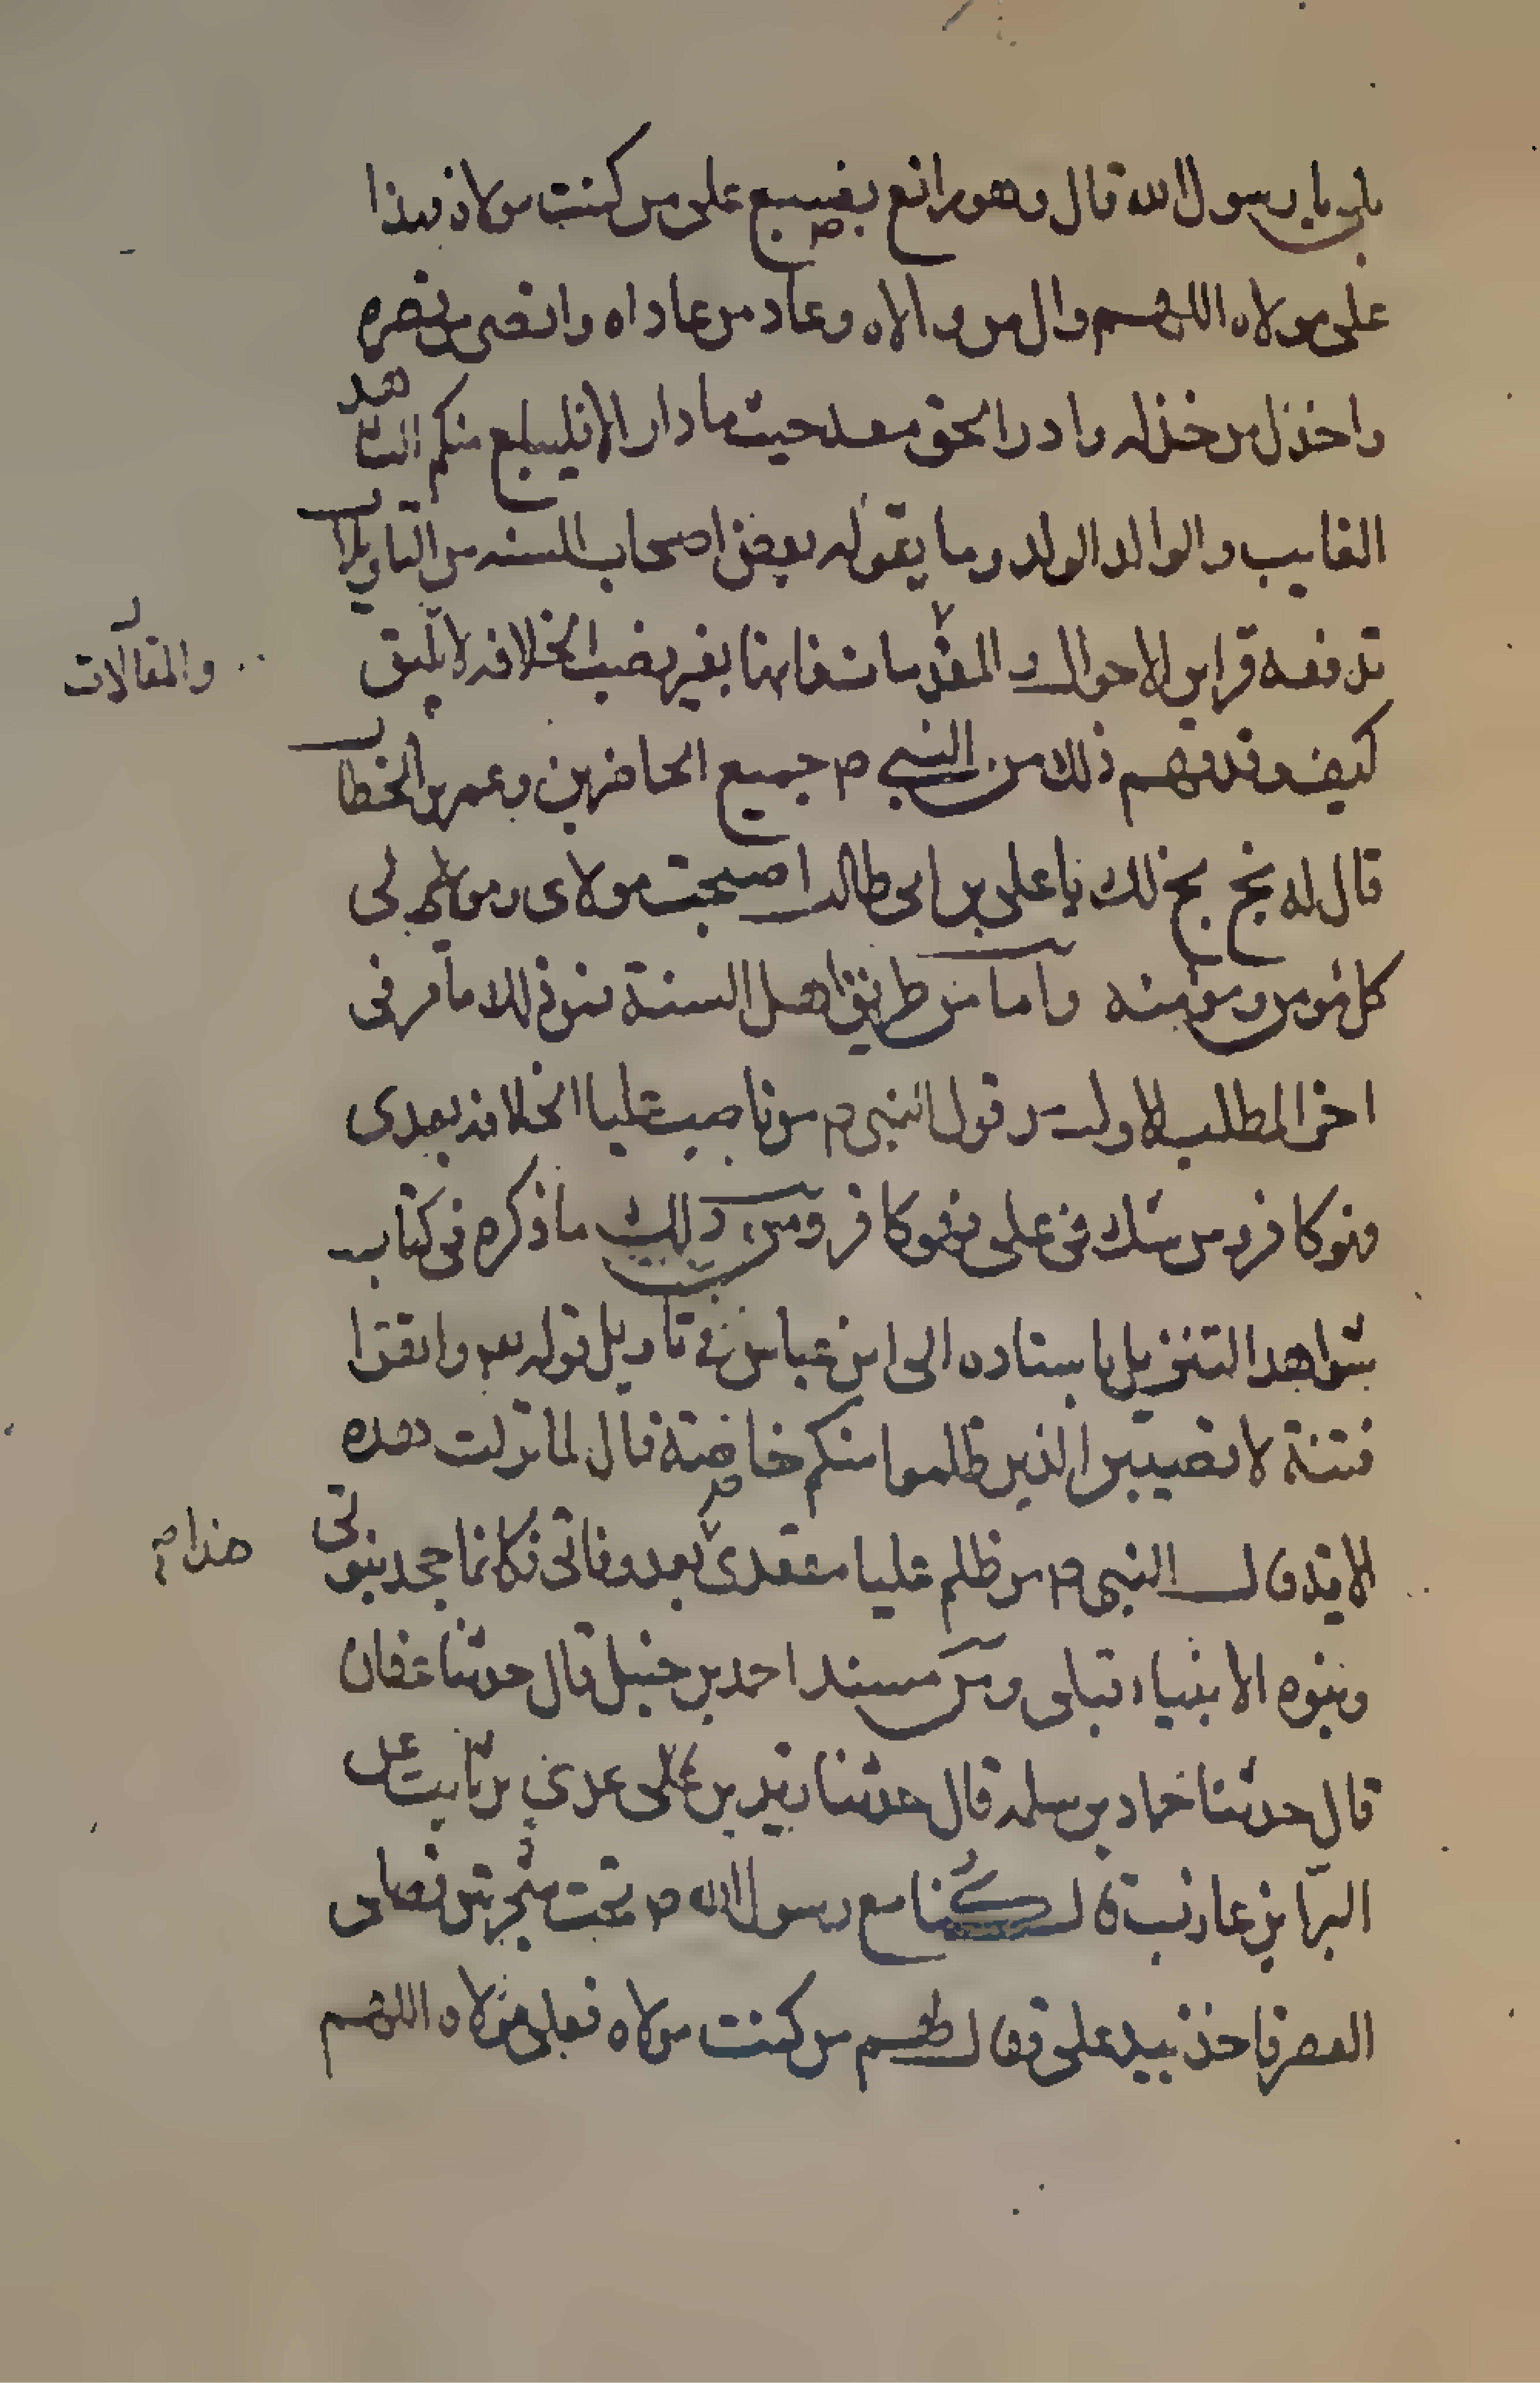 بلى يا رسول الله قال وهو رافع بضبع على من كنت مولاه فهذا
على مولاه اللهم وال من والاه وعاد من عاداه وانصر من نصره
واخذل من خذله وادر الحق معه حيث ما دار الا فليبلغ منكم الشاهد
الغايب والوالد الولد وما يقوله بعض اصحاب السنه من التاويلات
تدفعه قراين الاحوال والمقدمات فانها بغير نصب الخلافه لا تليق
والمقالات
كيف وقد فهم ذلك من النبى ص جميع الحاضرين وعمر بن الخطاب
قال له بخ بخ لك يا على بن ابى طالب اصبحت مولاى ومولى
كل مومن ومومنه واما من طريق اهل السنة فمن ذلك ما مر فى
اخر المطلب الاول من قول النبى ص من ناصب عليا الخلافه بعدى
فهو كافر ومن شك فى على فهو كافر ومن ذلك ما ذكره فى كتاب
شواهد التنزيل باسناده الى ابن عباس فى تاويل قوله تع واتقوا
فتنة لا تصيبن الذين ظلموا منكم خاصة قال لما نزلت هذه
الاية قال النبى ص من ظلم عليا مقعدى بعد وفاتى فكانما جحد بنبوتى
هذا ص
ونبوه الانبياء قبلى ومن مسند احمد بن حنبل قال حدثنا عفان
قال حدثنا حماد بن سلمه قال حدثنا زيد بن على عن عدي بن ثابت عن
البرا بن عازب قال كنا مع رسول الله ص تحت شجرتين فصلى
العصر فاخذ بيد على وقال اللهم من كنت مولاه فعلى مولاه اللهم